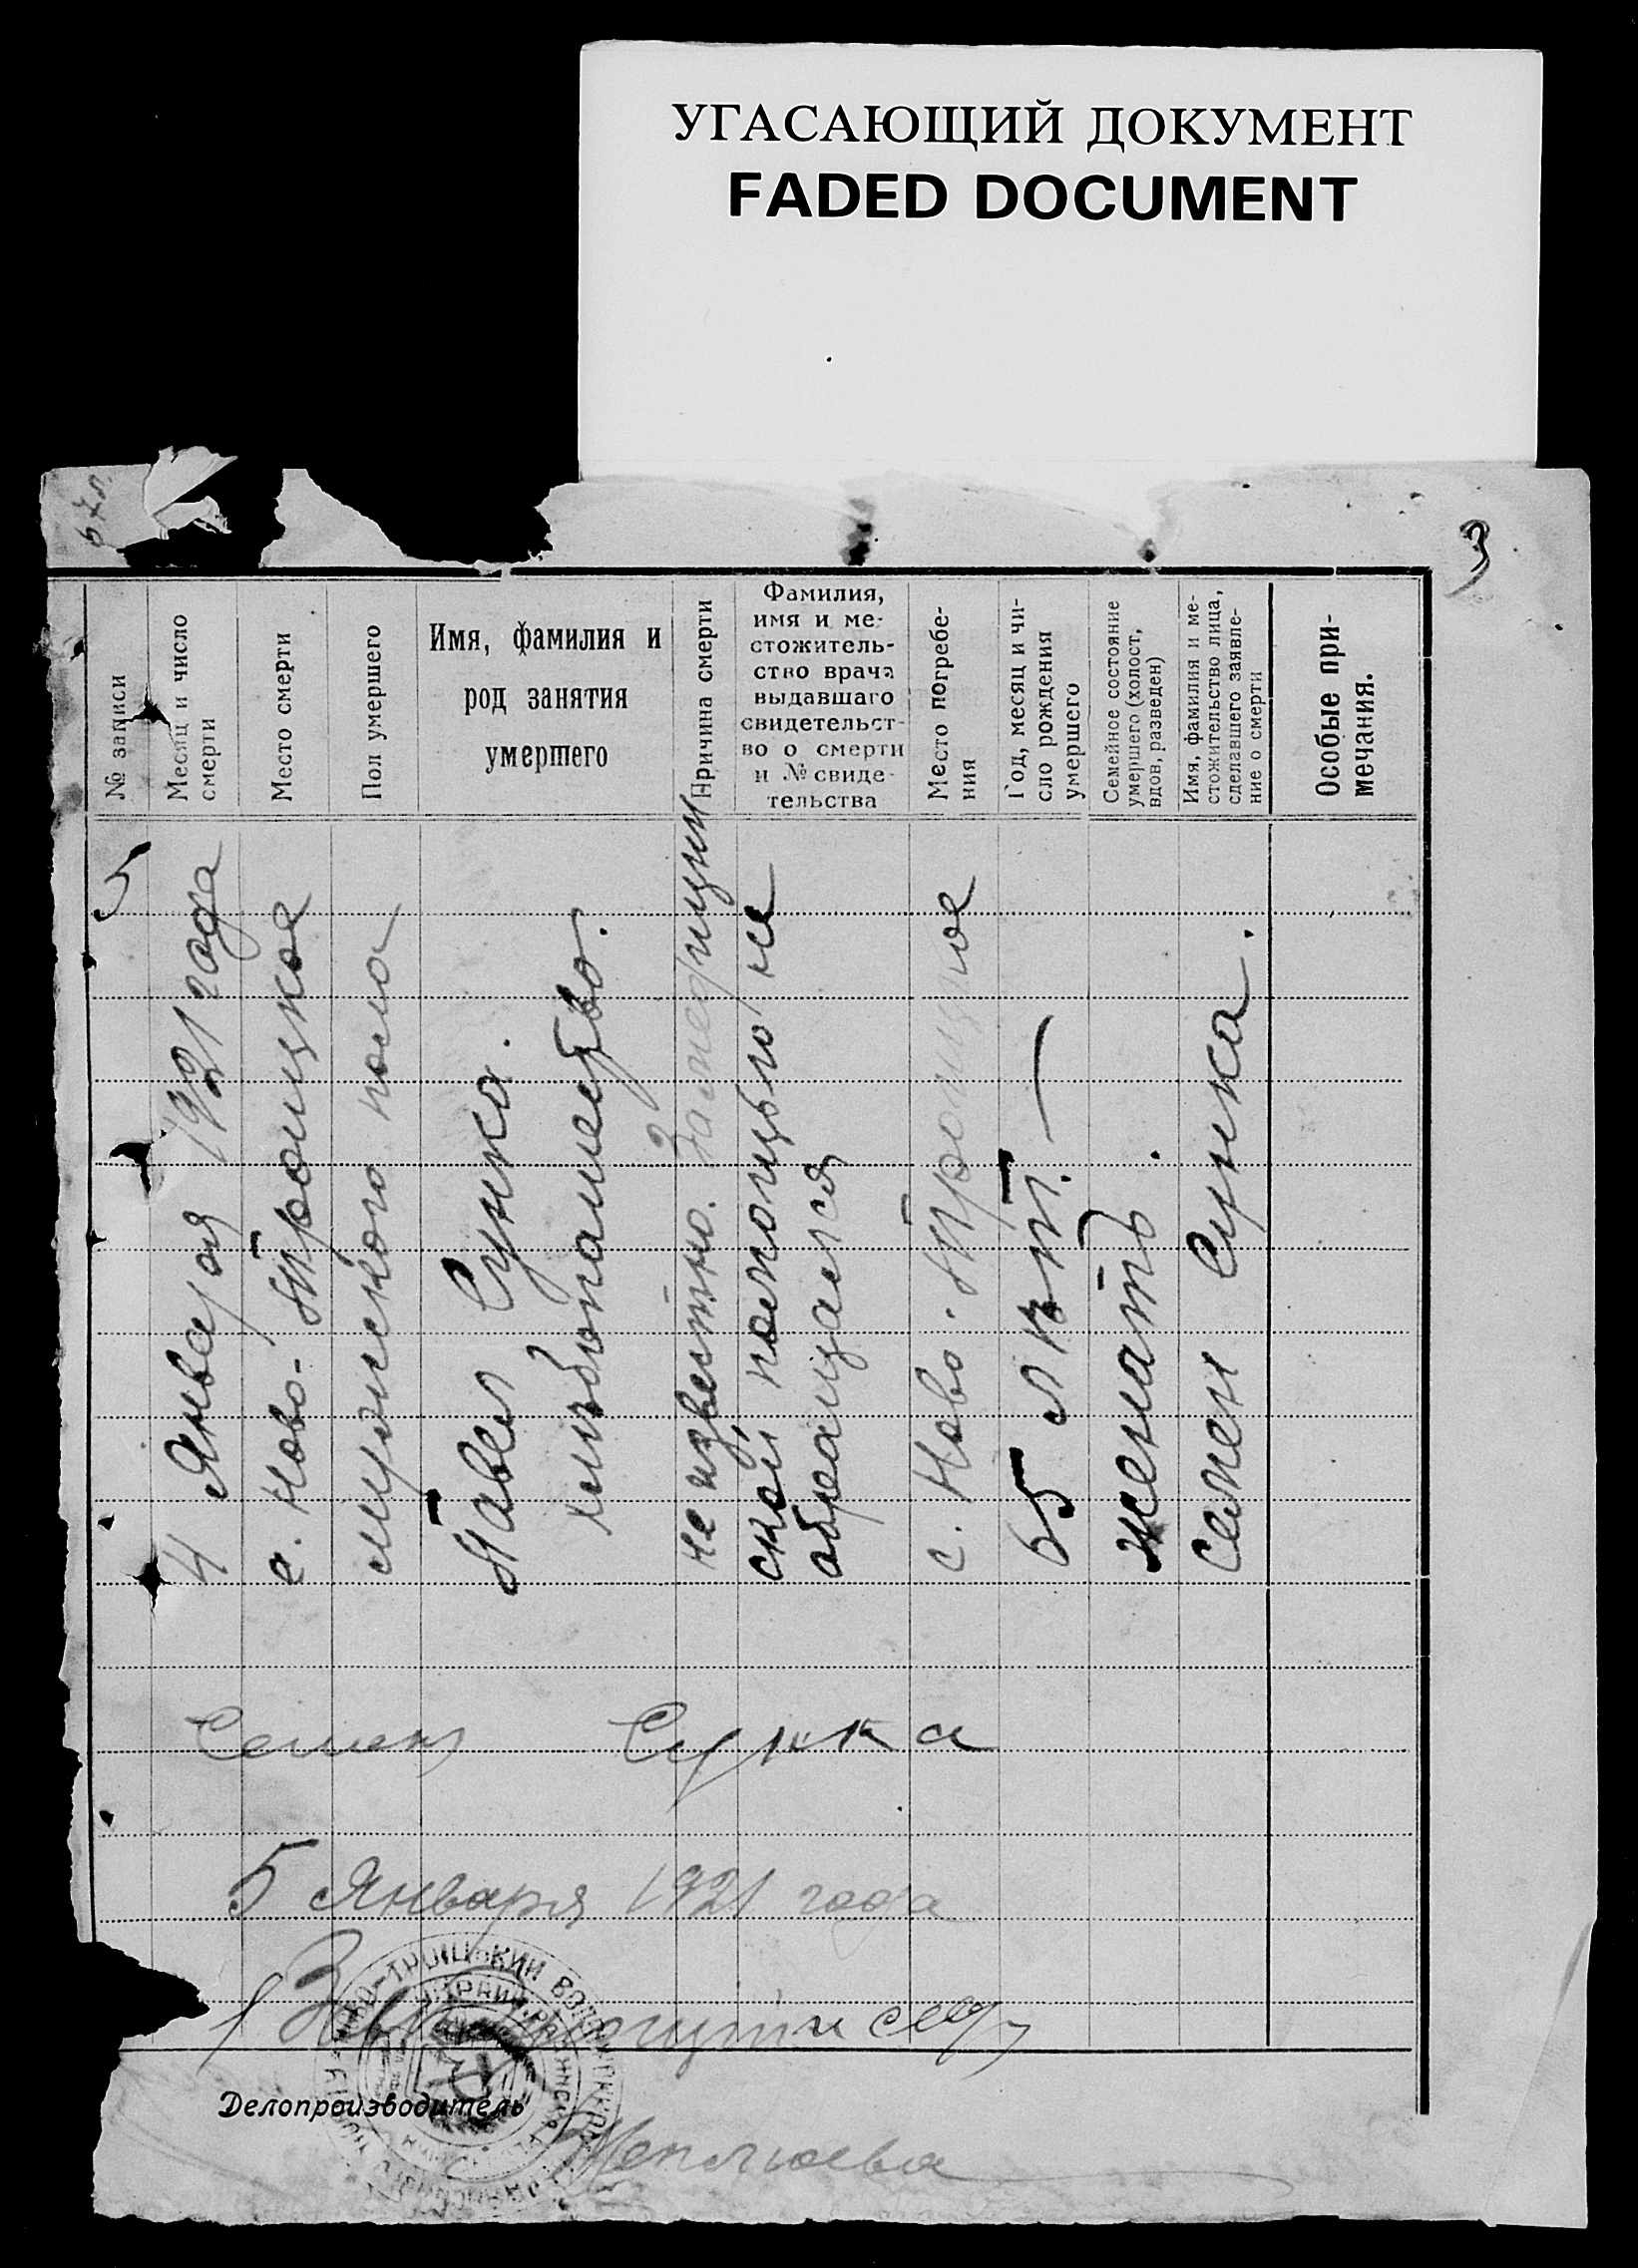 УГАСАЮЩИЙ ДОКУМЕНТ
FADED DOCUMENT
67л.
3
№ записи
Месяц и число
смерти
Место смерти
Пол умершего
Имя, фамилия и
род занятия
умершего
Причина смерти
Фамилия,
имя и ме-
стожитель-
ство врача
выдавшаго
свидетельст-
во о смерти
и № свиде-
тельства
Место погребе-
ния
Год, месяц и чи-
сло рождения
умершего
Семейное состояние
умершего (холост,
вдов, разведен)
Имя, фамилия и ме-
стожительство лица,
сделавшего заявле-
ние о смерти
Особые при-
мечания.
5
4 Января 1921 года
с. Ново-Троицкое
мужского пола
Павел Сунка.
хлебопашество.
не известно. За медицин
ской помощью не
обращался
с. Ново-Троицкое
65 лет. —
женатъ.
Семен Сунка.
Семен Сунка
5 Января 1921 года
Делопроизводитель